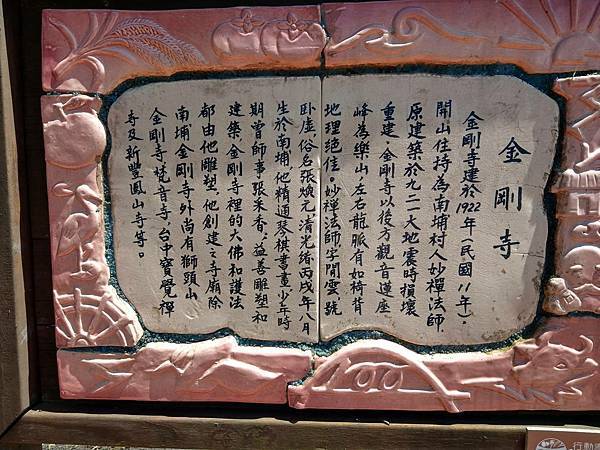 金剛寺
金剛寺建於1922年(民國11年)。
開山住持為南埔村人妙禪法師,
原建築於九二一大地震時損壞
重建。金剛寺以後方觀音蓮座
峰為樂山,左右龍脈有如椅背
地理絕佳。妙禪法師字閒雲,號
臥虛,俗名張煥元,清光緒丙戌年八月
生於南埔,他精通琴棋書畫,少年時
期曾師事張采香,益善雕塑和
建築,金剛寺裡的大佛和護法
都由他雕塑。他創建之寺廟除
南埔金剛寺外尚有獅頭山
金剛寺、梵音寺、台中寶覺禪
寺及新豐鳳山寺等。
100
行動